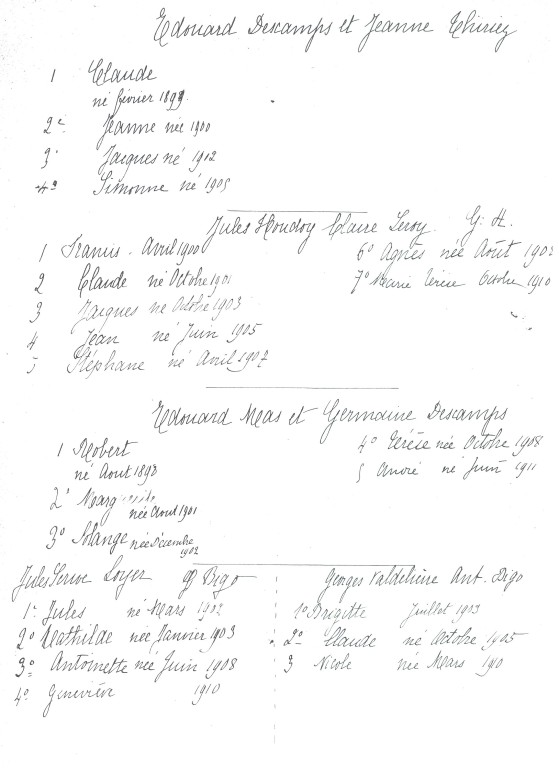 Edouard Descamps et Jeanne Thiriez
1 Claude
né février 1899
2e Jeanne née 1900
3° Jacques né 1902
4° Simonne né 1905
Jules Houdoy Claire Leroy. G. H.
1 Francis. Avril 1900
2 Claude né Octobre 1901
3 Jacques né Octobre 1903
4 Jean né Juin 1905
5 Stéphane né Avril 1907
6° Agnès née Août 190
7° Marie Térèse Octobre 1910
Edouard Mas et Germaine Descamps
1 Robert
né Aout 1898
2° Marg
née Aout 1901
3° Solange née Décembre
1902
4° Térèse née Octobre 1908
5 André né Juin 1911
Jules Loyer Bigo
1° Jules né Mars 1902
2° Mathilde née Janvier 1903
3° Antoinette née Juin 1908
4° Geneviève 1910
Georges Valdelièvre Ant. Bigo
1° Brigitte Juillet 1903
2° Claude né Octobre 1905
3 Nicole née Mars 1910